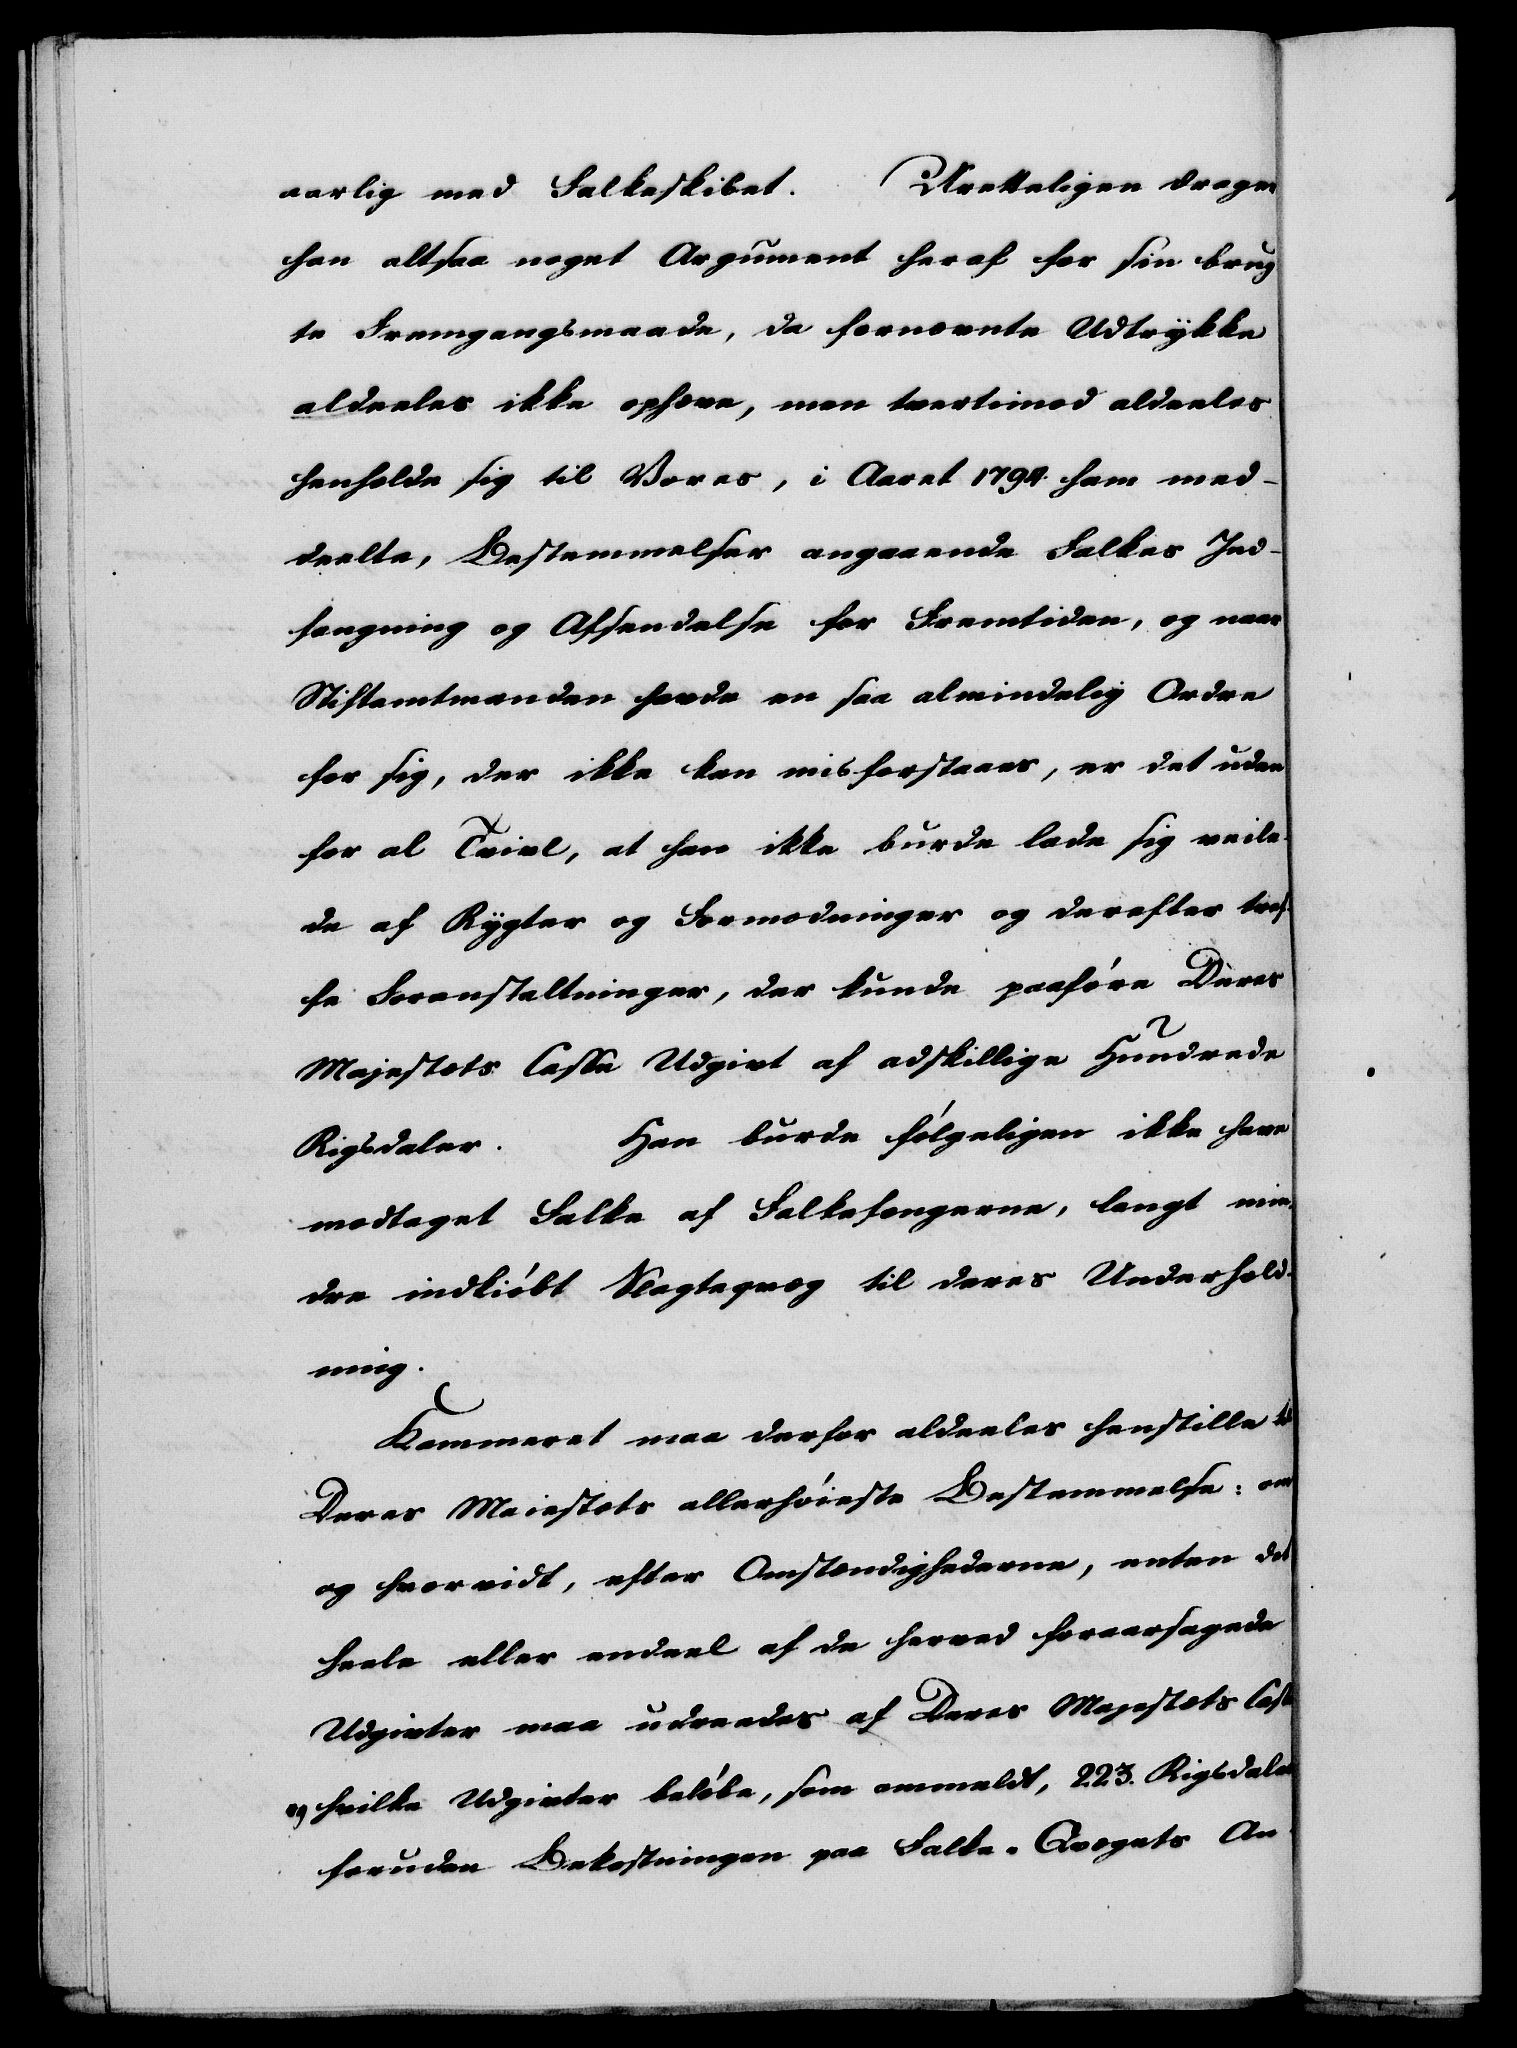 aarlig med Falkeskibet. Uretteligen drager
han altsaa noget Argument heraf for sin brug
te Fremgangsmaade, da fornævnte Udtrykke
aldeeles ikke ophæve, men tvertimod aldeeles
henholde sig til Vores, i Aaret 1794. ham med-
deelte, Bestemmelser angaaende Falkes Ind-
fangning og Afsendelse for Fremtiden, og naar
Stiftamtmanden havde en saa almindelig Ordre
for sig, der ikke kan misforstaaes, er det uden
for al Tvivl, at han ikke burde lade sig veile-
de af Rygter og Formodninger og derefter tref-
fe Foranstaltninger, der kunde paaføre Deres
Majestæts Casse Udgivt af adskillige Hundrede
Rigsdaler. Han burde følgeligen ikke have
modtaget Falke af Falkefangerne, langt min-
dre indkiøbt Slagteqvæg til deres Underhold-
ning.
Kammeret maa derfor aldeeles henstille til
Deres Maiestæts allerhøieste Bestemmelse: om
og hvorvidt, efter Omstændighederne, enten det
heele eller endeel af de herved foraarsagede
Udgivter maa udreedes af Deres Majestæts Casse
hvilke Udgivter beløbe, som anmeldt, 223. Rigsdaler
foruden Bekostningen paa Falke-Qvægets An-